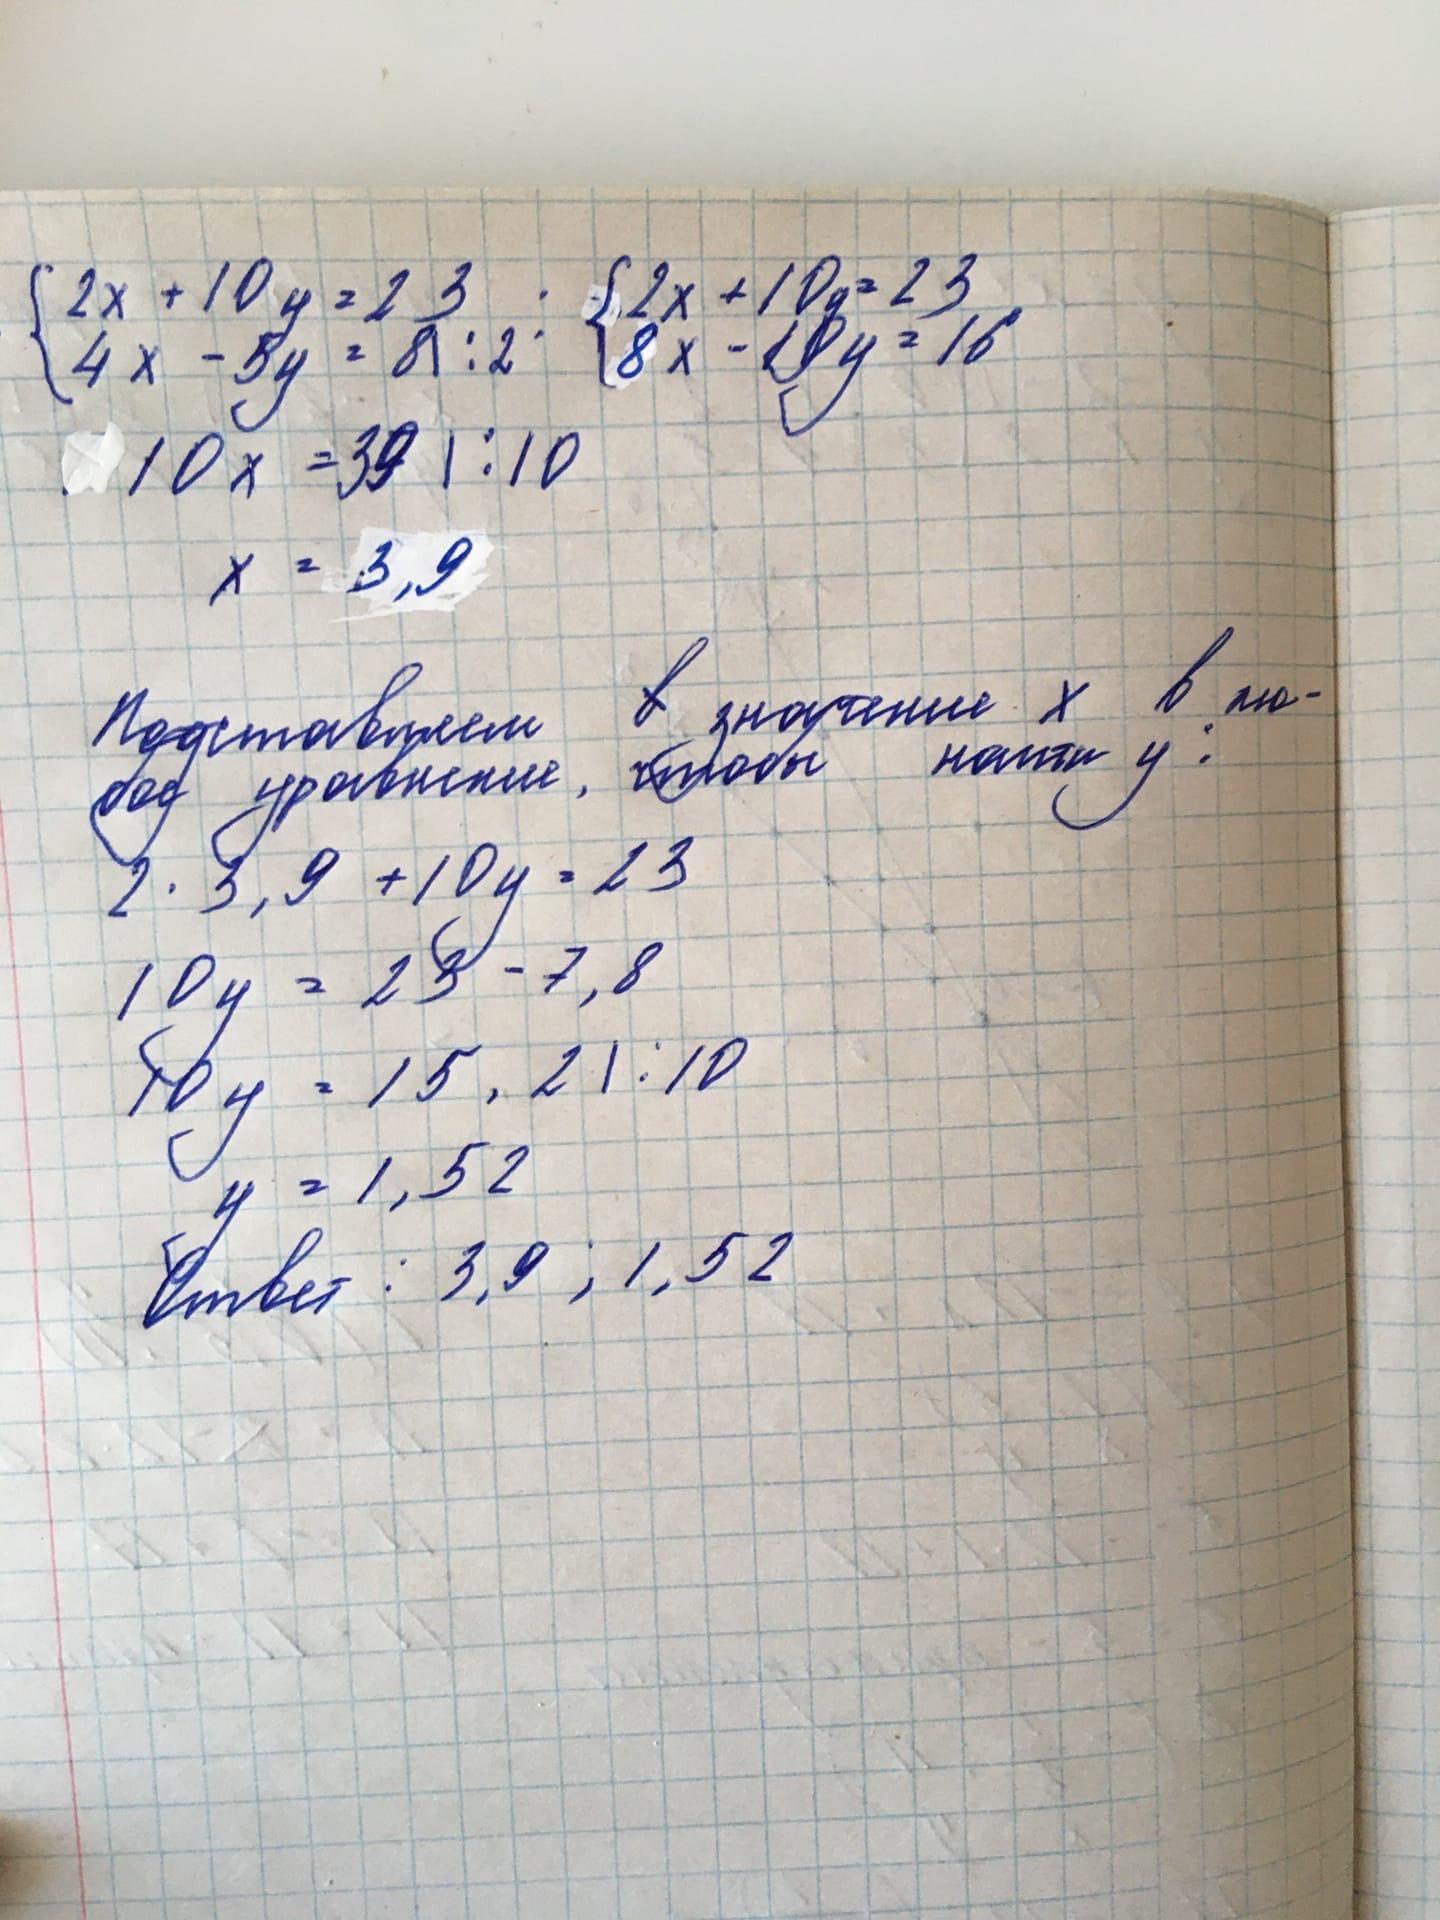 {2x + 10y = 23 ; {2x + 10y = 23
{4x - 5y = 8 | : 2 {8x - 10y = 16
10x = 39 | : 10
x = 3,9
Подставляем в значение x в лю-
бое уравнение, чтобы найти y:
2 · 3,9 + 10y = 23
10y = 23 - 7,8
10y = 15,2 | : 10
y = 1,52
Ответ : 3,9 ; 1,52